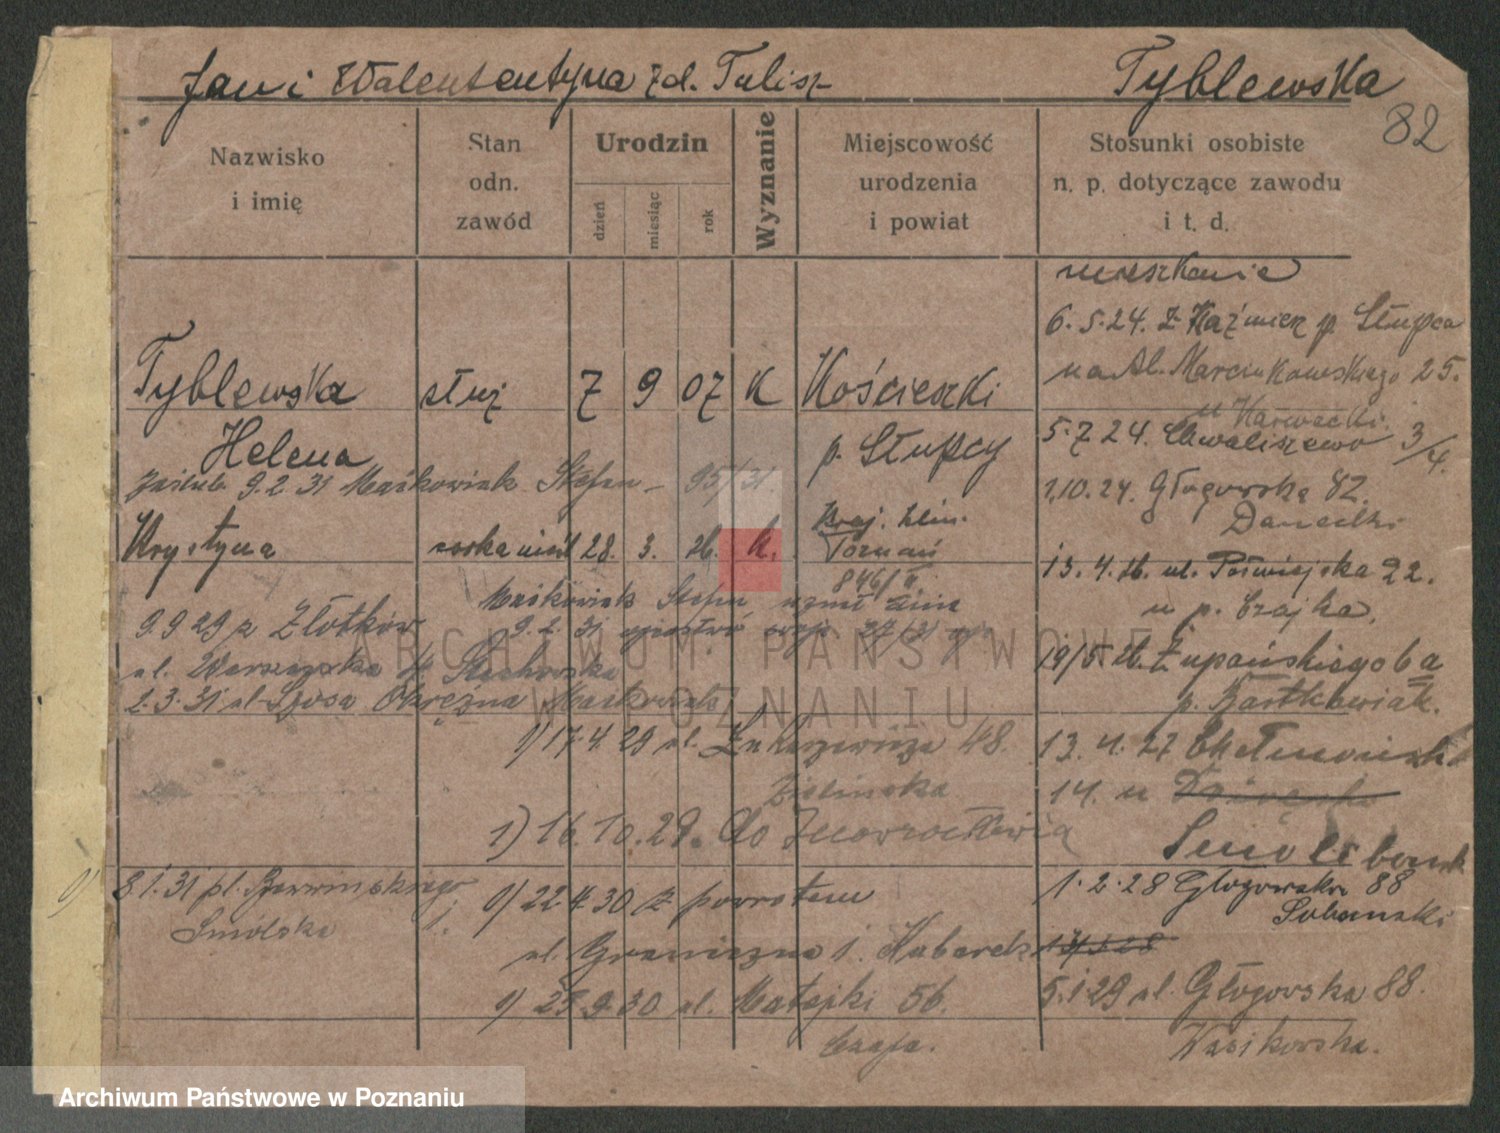 Jan i Walentyna zd. Tulisz Tyblewska
82
Nazwisko i imię
Stan odn. zawód
Urodzin
dzień miesiąc rok
Wyznanie
Miejscowość urodzenia i powiat
Stosunki osobiste n. p. dotyczące zawodu i t. d.
mieszkanie
6.5.24. z Kaźmierz p. Słupca
na Al. Marcinkowskiego 25.
u Karwecki.
Tyblewska służ 7 9 07 K Kościeszki
Helena p. Słupcy
5.7.24. Chwaliszewo 3/4.
zaślub. 9.2.31 Maćkowiak Stefan – 95/31.
1.10.24. Głogowska 82.
Danecki
Krystyna córka nieśl 28. 3. 26. k. Kraj. klin. Poznań
846/II.
13.4.26. ul. Poświejska 22.
u p. Czajka.
Maćkowiak Stefan uznał
9.9.29 z Złotków 9.2.31 27/31
ul. Warszawska
19/5.26. Żupańskiego 6a
p. Bartkowiak.
2.3.31 ul. Szosa Okrężna Maćkowiak
1) 17.4.29 ul. 48.
Zielińska
13.4.27
14. u
1) 16.10.29. do Inowrocławia
8.1.31 pl. Berwińskiego 1.
Smólska
1) 22.4.30 z powrotem
ul. Graniczna 1.
1.2.28 Głogowska 88
Sobanski
1) 25.9.30 ul. Matejki 56.
Czaja.
5.1.29 ul. Głogowska 88.
Wasikowska.
ARCHIWUM PAŃSTWOWE
W POZNANIU
Archiwum Państwowe w Poznaniu